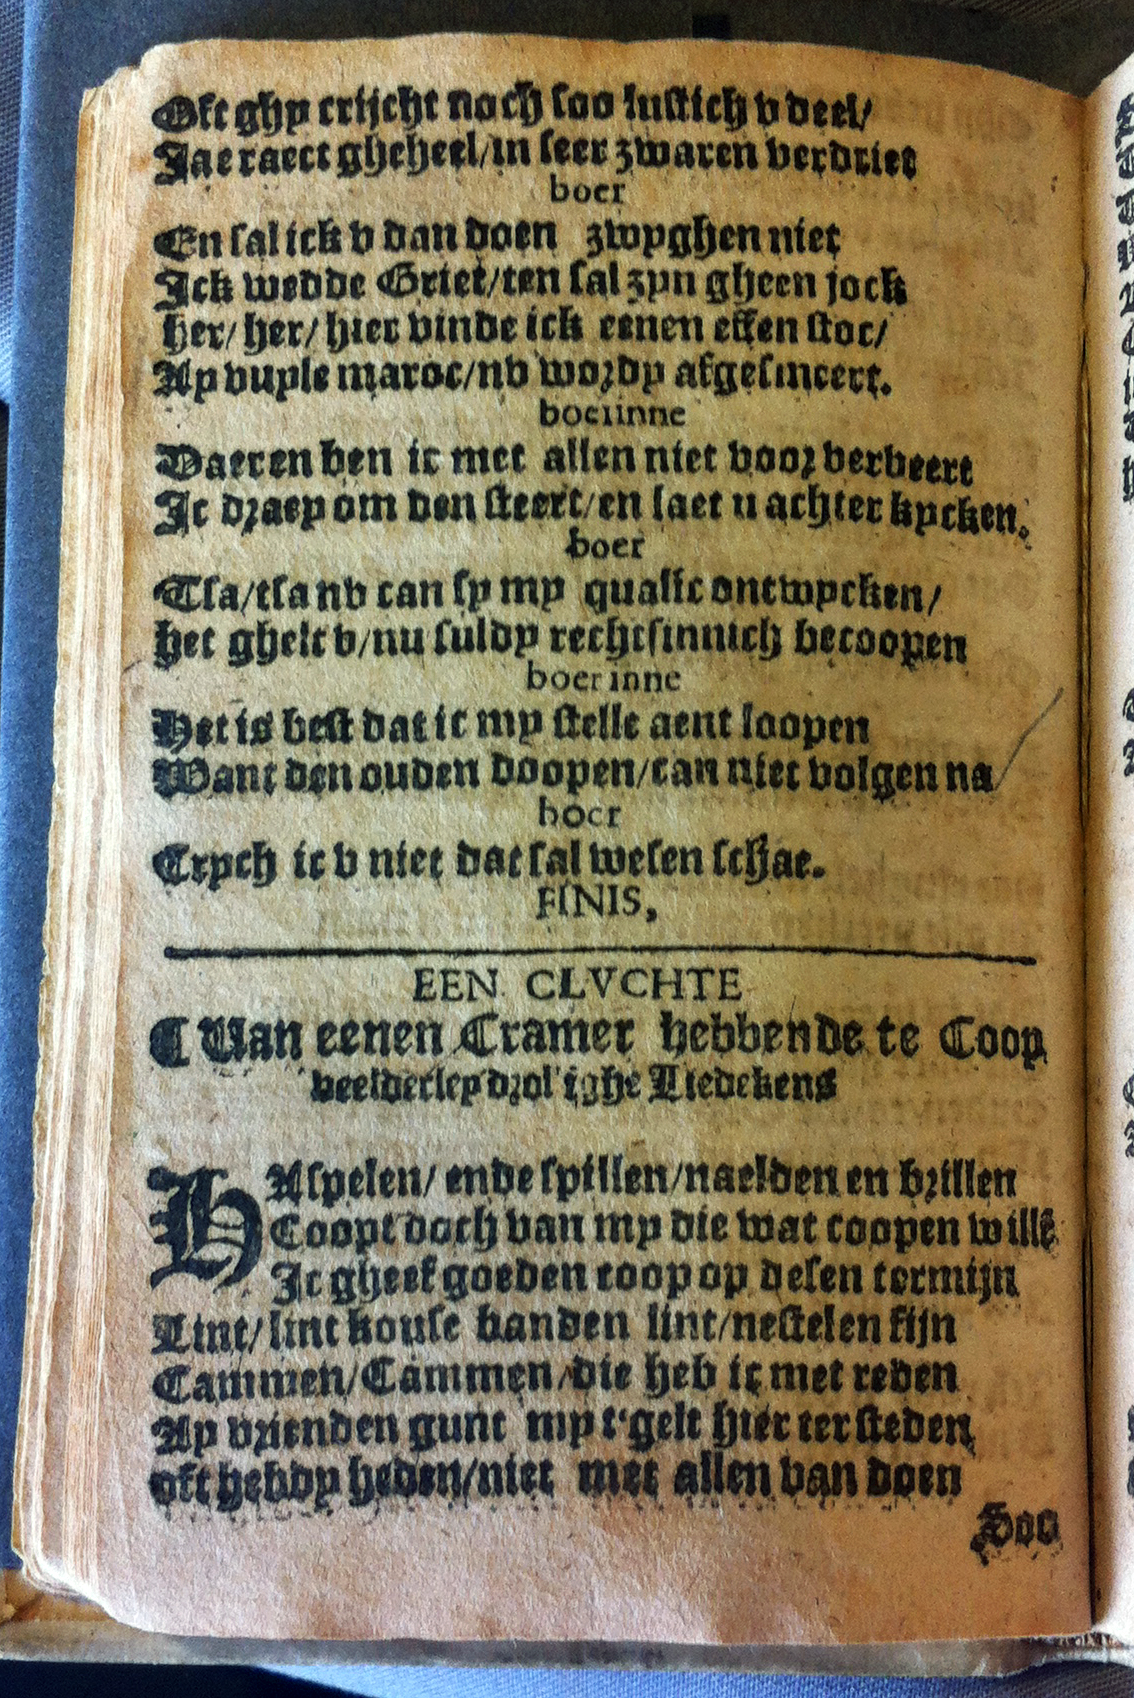 Oft ghy crijcht noch soo lustich v deel/
Jae raect gheheel/in seer zwaren verdriet
boer
En sal ick v dan doen zwyghen niet
Ick wedde Griet/ten sal zyn gheen jock
her/her/hier vinde ick eenen effen stoc/
Ay vuyle maroc/nv wordy afgesmeert.
boerinne
Daer en ben ic met allen niet voor verveert
Ic draey om den steert/en laet u achter kycken.
boer
Tsa/tsa nv can sy my qualic ontwycken/
het ghelt v/nu suldy rechtsinnich becoopen
boerinne
Het is best dat ic my stelle aent loopen
Want den ouden doopen/can niet volgen na
boer
Crych ic v niet dat sal wesen schae.
FINIS,
EEN CLVCHTE
Van eenen Cramer hebbende te Coop
veelderley drollighe Liedekens
HAspelen/ ende spillen/naelden en brillen
Coopt doch van my die wat coopen willē
Ic gheef goeden coop op desen termijn
Lint/ lint kouse banden lint/nestelen fijn
Cammen/Cammen/die heb ic met reden
Ay vrienden gunt my t'gelt hier ter steden
oft hebdy heden/niet met allen van doen
Soo